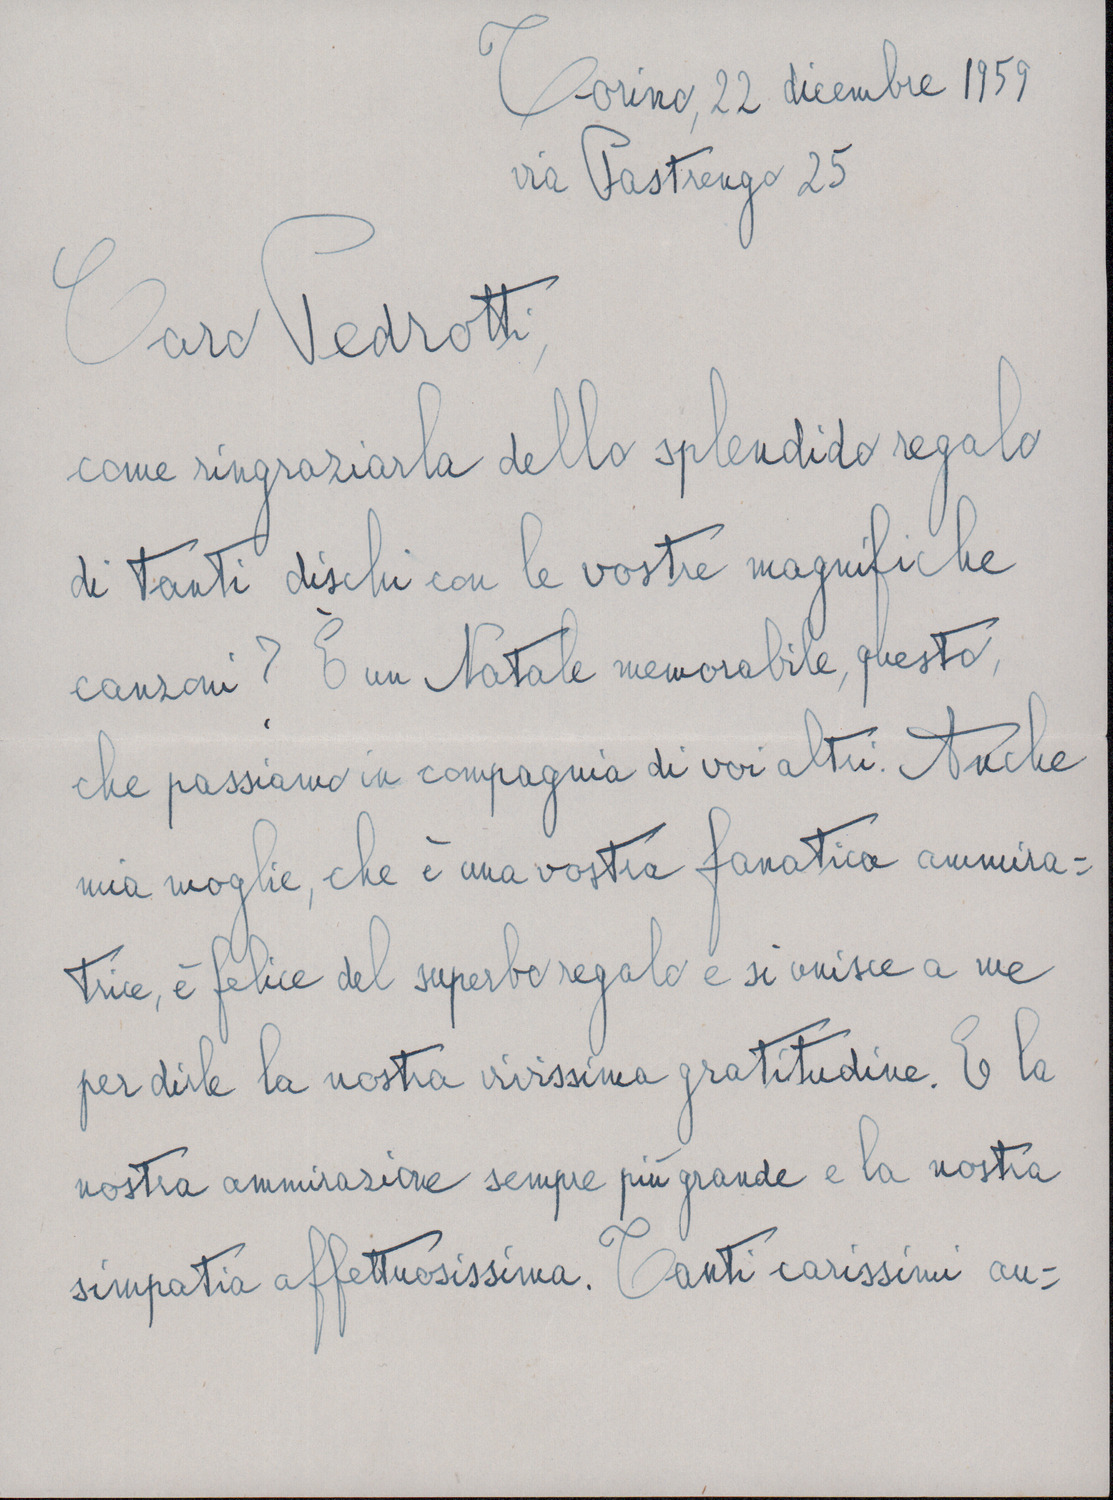 Torino, 22 dicembre 1959
via Pastrengo 25
Caro Pedrotti,
come ringraziarla dello splendido regalo
di tanti dischi con le vostre magnifiche
canzoni? È un Natale memorabile, questo,
che passiamo in compagnia di voi altri. Anche
mia moglie, che è una vostra fanatica ammira=
trice, è felice del superbo regalo e si unisce a me
per dirle la nostra vivissima gratitudine. E la
nostra ammirazione sempre più grande e la nostra
simpatia affettuosissima. Tanti carissimi au=